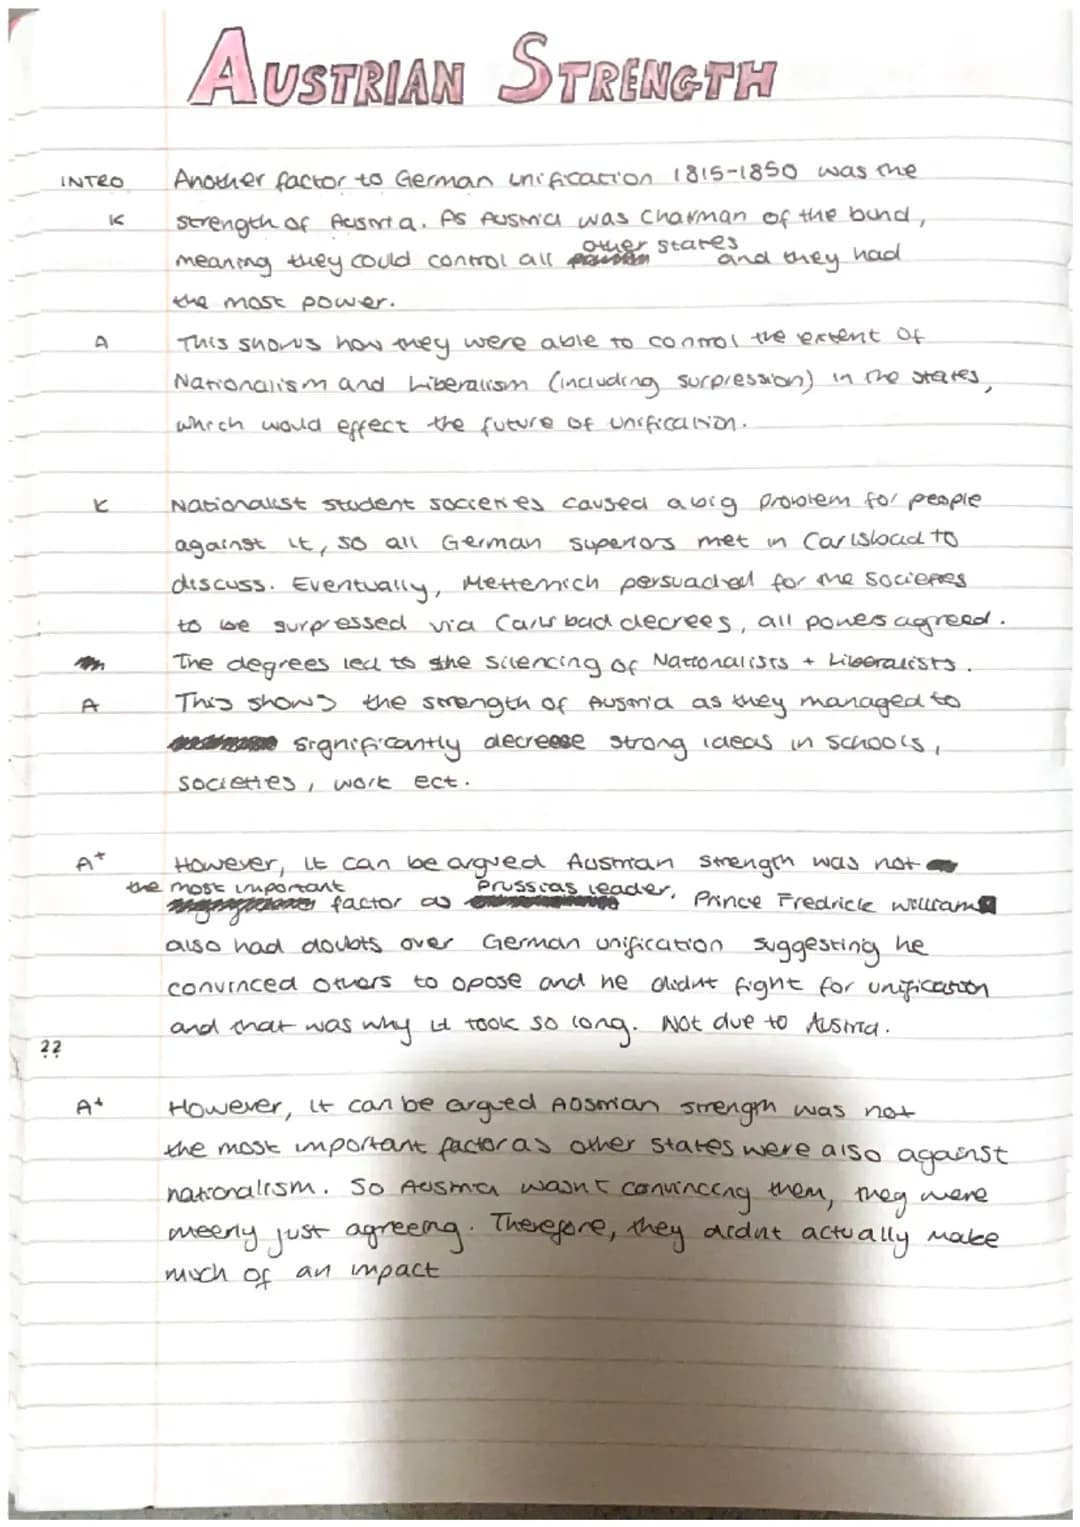 AUSTRIAN STRENGTH
INTRO Another factor to German unification 1815-1850 was the
K strength of Austria. As Austria was Chairman of the bund,
meaning they could control all other states and they had
the most power.
A This shows how they were able to control the extent of
Nationalism and Liberalism (including surpression) in the states,
which would effect the future of unification.
K Nationalist student societies caused a big problem for people
against it, so all German superiors met in Carlsbad to
discuss. Eventually, Metternich persuaded for the societies
to be surpressed via Carlsbad decrees, all powers agreed.
The degrees led to the silencing of Nationalists + Liberalists.
A This shows the strength of Austria as they managed to
significantly decrease strong ideas in schools,
societies, work ect.
A+ However, it can be argued Austrian strength was not
the most important factor as Prussias leader, Prince Fredrick William
also had doubts over German unification suggesting he
convinced others to opose and he didnt fight for unification
and that was why it took so long. Not due to Austria.
??
A+ However, it can be argued Austrian strength was not
the most important factor as other states were also against
nationalism. So Austria wasnt convincing them, they were
meerly just agreeing. Therefore, they didnt actually make
much of an impact